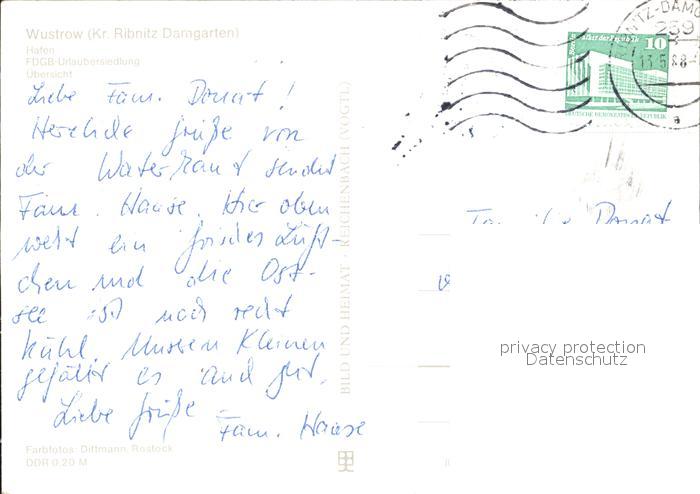 Wustrow (Kr. Ribnitz Damgarten)
Hafen
FDGB-Urlaubersiedlung
Übersicht
Liebe Fam. Donat!
Herzliche Grüße von
der Waterkant sendet
Fam. Haase. Hier oben
weht ein frisches Lüft-
chen und die Ost-
see ist noch recht
kühl. Unseren Kleinen
gefällt es auch gut.
Liebe Grüße
Fam. Haase
Farbfotos: Dittmann, Rostock
DDR 0,20 M
BILD UND HEIMAT · REICHENBACH (VOGTL)
NITZ-DAMG
259
13.5.88
a
Palast der Republik
10
DEUTSCHE DEMOKRATISCHE REPUBLIK
Familie Donat
privacy protection
Datenschutz